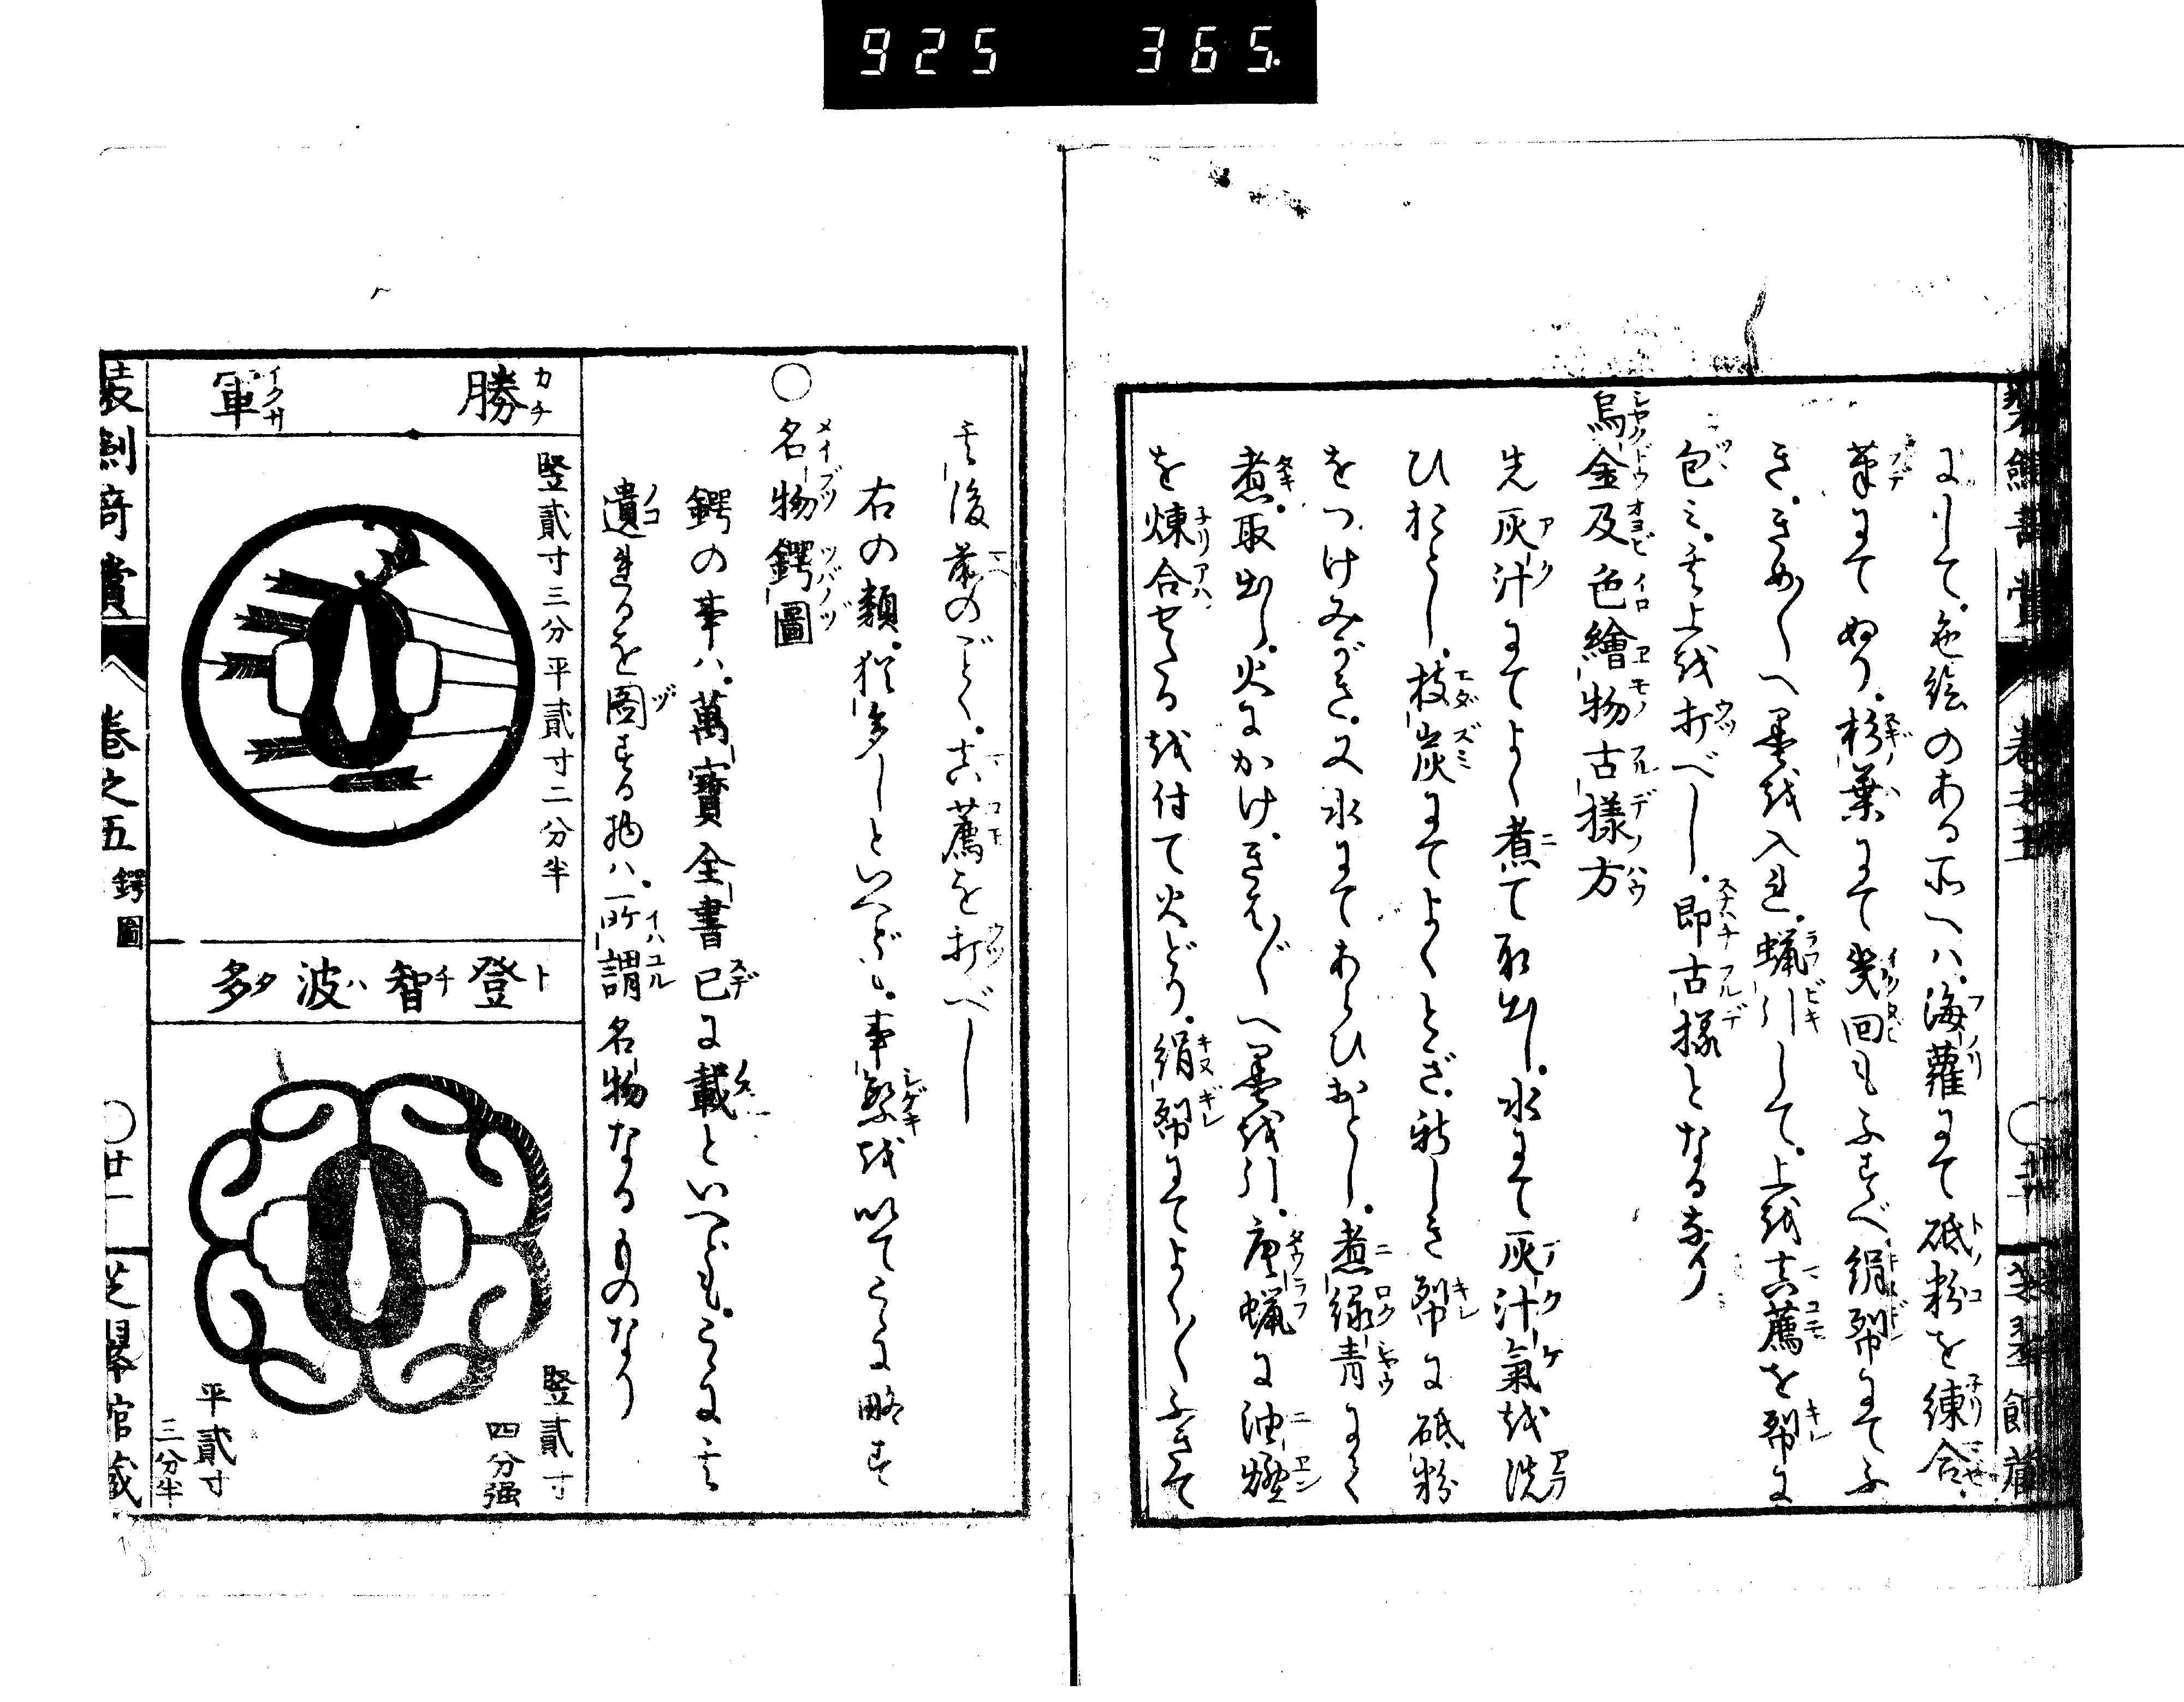 925 365.
にして。色絵のある所へハ。海蘿にて砥粉を練合。
筆にてぬり。杉葉にて幾回もふすべ。絹帛にてふ
き。きめ〳〵へ墨を入れ。蝋引して。上を真薦を帛に
包ミ。其上を打べし。即古様となるなり
烏金及色繪物古様方
先灰汁にてよく煮て取出し。水にて灰汁氣を洗
ひおとし。枝炭にてよくとぎ。新しき帛に砥粉
をつけみがき。又水にてあらひおとし。煮緑青にて
煮。取出し。火にかけ。きめ〳〵へ墨を引。唐蝋に油煙
を煉合せたるを付て火どり。絹帛にてよく〳〵ふきて
其後前のごとく。真薦を打べし
右の類。猶多しといへども。事繁を以てこゝに略す
○名物鍔圖
鍔の事ハ。萬寶全書已に載といへども。こゝに其
遺れるを圖する物ハ。所謂名物なるものなり
勝軍
竪貳寸三分平貳寸二分半
登智波多
竪貳寸
四分强
平貳寸
三分半
装劍竒賞 巻之五 鍔圖 ○廿一 芝翠館蔵